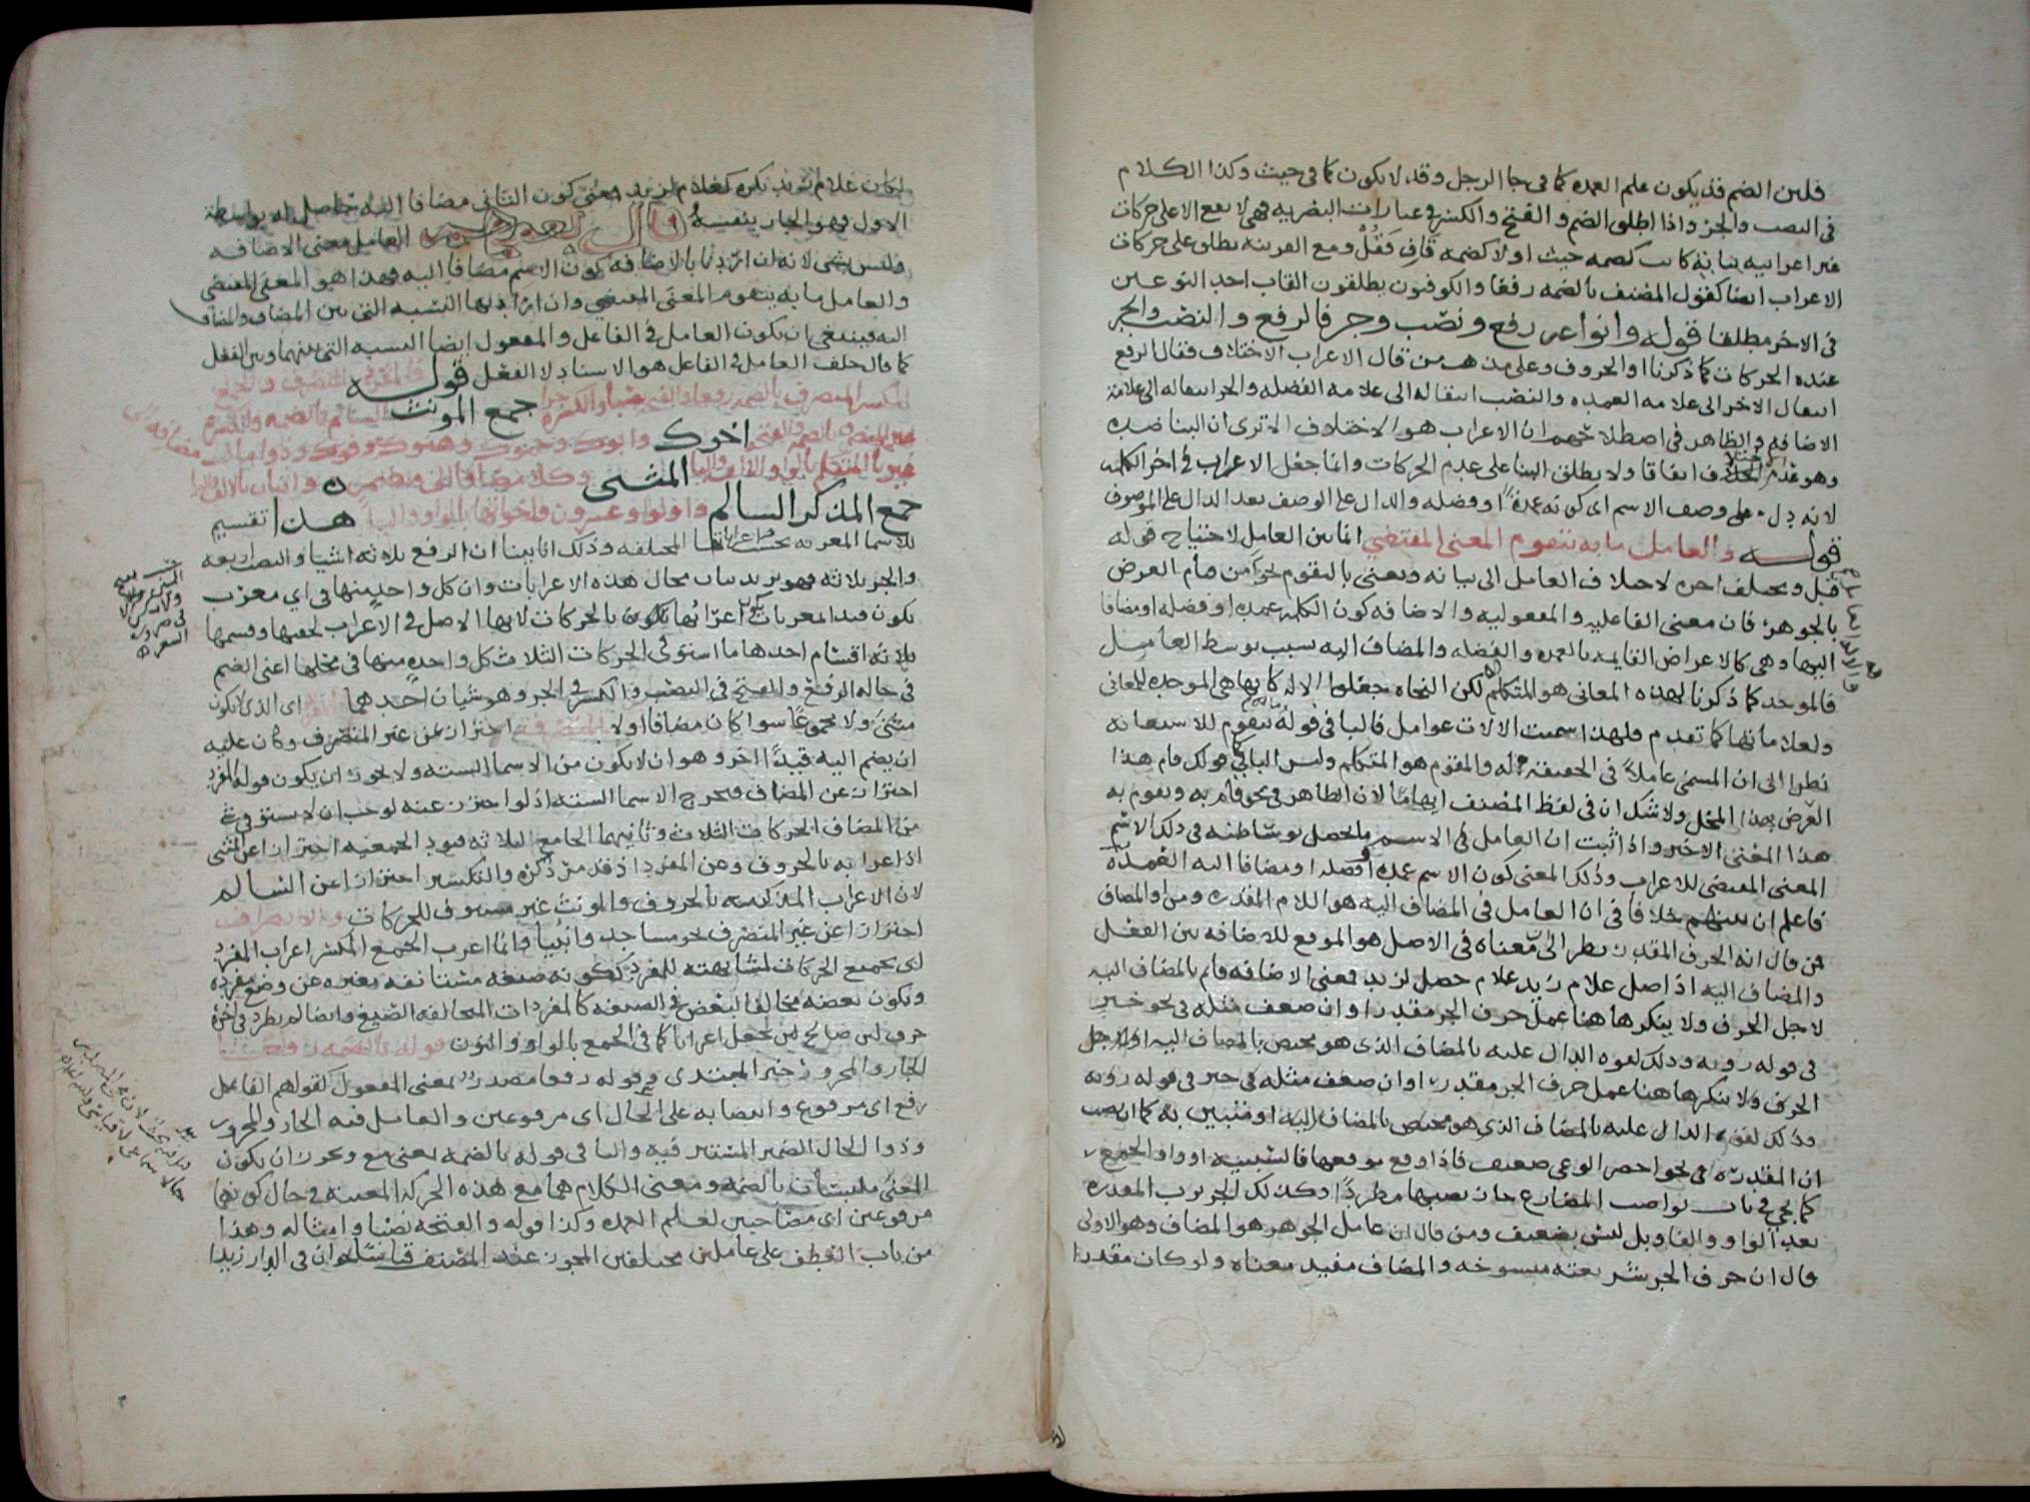 فلين الضم قد يكون علم العمده كما فى جا الرجل وقد لا يكون كما فى حيث وكذا الكلام
فى النصب والجر واذا اطلق الضم و الفتح والكسر فى عبارات البصريه فهى لا يقع الا على حركات
غير اعرابيه بنائيه كانت كضمه حيث او لا كضمه قاف قفل ومع القرينه يطلق على حركات
الاعراب ايضا كقول المصنف بالضمه رفعا والكوفيون يطلقون القاب احد النوعين
فى الاخر مطلقا قوله وانواعه رفع ونصب وجر فالرفع والنصب والجر
عنده الحركات كما ذكرنا او الحروف وعلى مذهب من قال الاعراب الاختلاف فقال الرفع
انتقال الاخر الى علامه العمده والنصب انتقاله الى علامه الفضله والجر انتقاله الى علامه
الاضافه والظاهر فى اصطلاحهم ان الاعراب هو الاختلاف الا ترى ان البنا ضده
وهو عدم الاختلاف اتفاقا ولا يطلق البنا على عدم الحركات وانما جعل الاعراب فى اخر الكلمه
لانه دل على وصف الاسم اى كونه عمدة او فضله والدال على الوصف بعد الدال على الموصوف
قوله والعامل ما به يتقوم المعنى المقتضي انما بين العامل لاحتياج قوله
قبل ويختلف اخره لاختلاف العامل الى بيانه ويعنى بالتقوم نحوا من قيام العرض
بالجوهر فان معنى الفاعليه والمفعوليه والاضافه كون الكلمه عمده او فضله او مضافا
اليها وهى كالاعراض القايمه بالعمده والفضله والمضاف اليه بسبب توسط العامل
فالموجد كما ذكرنا لهذه المعانى هو المتكلم لكن النحاه جعلوا الاله كانها هى الموجده للمعانى
ولعلاماتها كما تقدم فلهذا سميت الالات عوامل فالبا فى قوله به يتقوم للاستعانه
نظرا الى ان المسمى عاملا فى الحقيقه اله والمقوم هو المتكلم وليس البا كما فى قولك قام هذا
العرض بهذا المحل ولا شك ان فى لفظ المصنف ايهاما لان الظاهر فى نحو قام به وتقوم به
هذا المعنى الاخير واذا ثبت ان العامل فى الاسم ما يحصل بوساطته فى ذلك الاسم
المعنى المقتضى للاعراب وذلك المعنى كون الاسم عمده او فضله او مضافا اليه العمده
فاعلم ان بينهم خلافا فى ان العامل فى المضاف اليه هو اللام المقدره ومن او المضاف
فمن قال انه الحرف المقدر نظر الى ان معناه فى الاصل هو الموقع للاضافه بين الفعل
والمضاف اليه اذ اصل غلام زيد غلام حصل لزيد فمعنى الاضافه قايم بالمضاف اليه
لاجل الحرف ولا ينكر هاهنا عمل حرف الجر مقدرا وان ضعف مثله فى نحو خير
فى قوله روبه وذلك لقوه الدال عليه بالمضاف الذى هو مختص بالمضاف اليه او لاجل
الحرف ولا ينكر هاهنا عمل حرف الجر مقدرا وان ضعف مثله فى خير فى قوله روبه
وذلك لقوه الدال عليه بالمضاف الذى هو مختص بالمضاف اليه او متبين به كما ان نصب
ان المقدره فى نحو احضر الوغى ضعيف فاذا وقع موقعها فا السببيه او واو الجمع
كما يجى فى باب نواصب المضارع جاز نصبها مطردا وكذلك الجر برب المقدره
بعد الواو والفا وبل ليس بضعيف ومن قال ان عامل الجر هو المضاف وهو الاولى
قال ان حرف الجر شريعته منسوخه والمضاف مفيد معناه ولو كان مقدرا
لكان غلام زيد نكره كغلام لزيد فمعنى كون الثانى مضافا اليه حاصل له بواسطه
الاول فهو الجار بنفسه وقال بعضهم العامل معنى الاضافه
وليس بشى لانه ان اراد بالاضافه كون الاسم مضافا اليه فهذا هو المعنى المقتضى
والعامل ما به يتقوم المعنى المقتضي وان اراد بها النسبه التى بين المضاف والمضاف
اليه فينبغى ان يكون العامل فى الفاعل والمفعول ايضا النسبه التى بينهما وبين الفعل
كما قال خلف العامل فى الفاعل هو الاسناد لا الفعل قوله فالمفرد المنصرف والجمع
المكسر المنصرف بالضمه رفعا والفتحه نصبا والكسره جرا جمع المونث السالم بالضمه والكسره
غير المنصرف بالضمه والفتحه اخوك وابوك وحموك وهنوك وفوك وذو مال مضافه الى
غير يا المتكلم بالواو والالف واليا المثنى وكلا مضافا الى مضمر واثنان بالالف واليا
جمع المذكر السالم واولوا وعشرون واخواتها بالواو واليا هذا تقسيم
للاسما المعربه بحسب اعراباتها المختلفه وذلك انا بينا ان الرفع ثلاثه اشيا والنصب اربعه
والجر ثلاثه فهو يريد بيان محال هذه الاعرابات وان كل واحد منها فى اي معرب
يكون فبدا بمعربات اعرابها بالحركات لانها الاصل فى الاعراب لخفتها وقسمها
ثلاثه اقسام احدها ما استوفى الحركات الثلاث كل واحده منها فى محلها اعنى الضم
فى حاله الرفع والفتح فى النصب والكسر فى الجر وهو شيان احدهما المفرد اى الذى لا يكون
مثنى ولا مجموعا سوا كان مضافا او لا المنصرف احتراز عن غير المنصرف وكان عليه
ان يضم اليه قيدا اخر وهو ان لا يكون من الاسما السته ولا يجوز ان يكون قوله المفرد
احترازا عن المضاف فيخرج الاسما السته اذ لو احترز عنه لوجب ان لا يستوفى
من المضاف الحركات الثلاث وثانيهما الجامع لثلاثه قيود الجمعيه احترازا عن المثنى
اذ اعرابه بالحروف وعن المفرد اذ قد مر ذكره والتكسير احترازا عن السالم
لان الاعراب المذكر منه بالحروف والمونث غير مستوف للحركات والانصراف
احترازا عن غير المنصرف نحو مساجد وانبيا وانما اعرب الجمع المكسر اعراب المفرد
اى بجميع الحركات لمشابهته للمفرد بكونه صيغه مستانفه مغيره عن وضع مفرده
وبكون بعضه مخالفا لبعض فى الصيغه كالمفردات المتخالفه الصيغ وايضا لم يطرد فى اخره
حرف لين صالح لان يجعل اعرابا كما فى الجمع بالواو والنون قوله بالضمه رفعا
الجار والمجرور خبر المبتدى وقوله رفعا مصدر بمعنى المفعول كقولهم الفاعل
رفع اى مرفوع وانتصابه على الحال اى مرفوعين والعامل فيه الجار والمجرور
وذوا الحال الضمير المستتر فيه والبا فى قوله بالضمه بمعنى مع ويجوز ان يكون
المعنى ملتبسان بالضمه ومعنى الكلام هما مع هذه الحركه المعينه فى حال كونهما
مرفوعين اى مصاحبين لعلم العمده وكذا قوله والفتحه نصبا وامثاله وهذا
من باب العطف على عاملين مختلفين المجوز عند المصنف قياسا نحو ان فى الدار زيدا